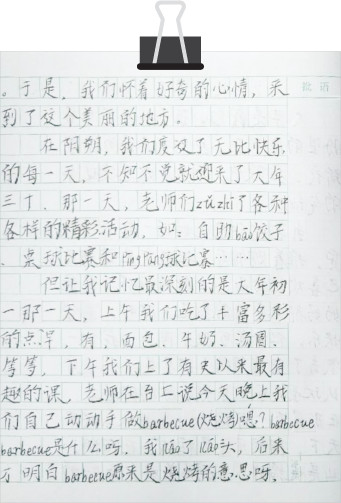 。于是，我们怀着好奇的心情，来
到了这个美丽的地方。
在阳朔，我们度过了无比快乐
的每一天，不知不觉就迎来了大年
三十。那一天，老师们zǔzhī了各种
各样的精彩活动，如：自助bāo饺子
、桌球比赛和pīngpāng球比赛……
但让我记忆最深刻的是大年初
一那一天，上午我们吃了丰富多彩
的点心，有，面包、牛奶、汤圆、
等等，下午我们上了有史以来最有
趣的课，老师在台上说今天晚上我
们自己动动手做barbecue(烧烤)嗯？barbecue
barbecue是什么呀，我náo了náo头，后来
才明白barbecue原来是烧烤的意思呀，